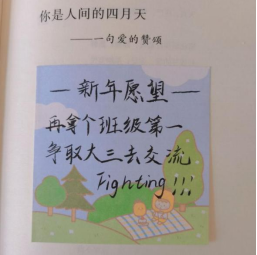 你是人间的四月天
——一句爱的赞颂
— 新年愿望 —
再拿个班级第一
争取大三去交流
Fighting!!!